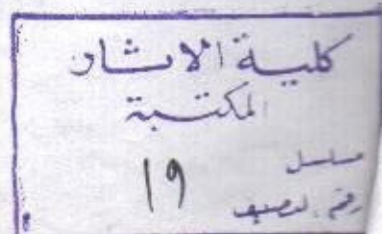 كلية الاثار
المكتبة
مسلسل ١٩
رقم التصنيف